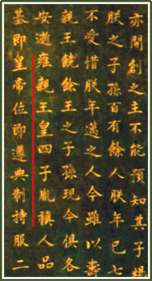 亦開創之主不能預知其子
朕之子孫百有餘人朕年已七
不愛惜朕年邁之人今雖以壽
親王饒餘王之子孫現今俱各
安適雍親王皇四子胤禛人品
基即皇帝位即遵典制持服二